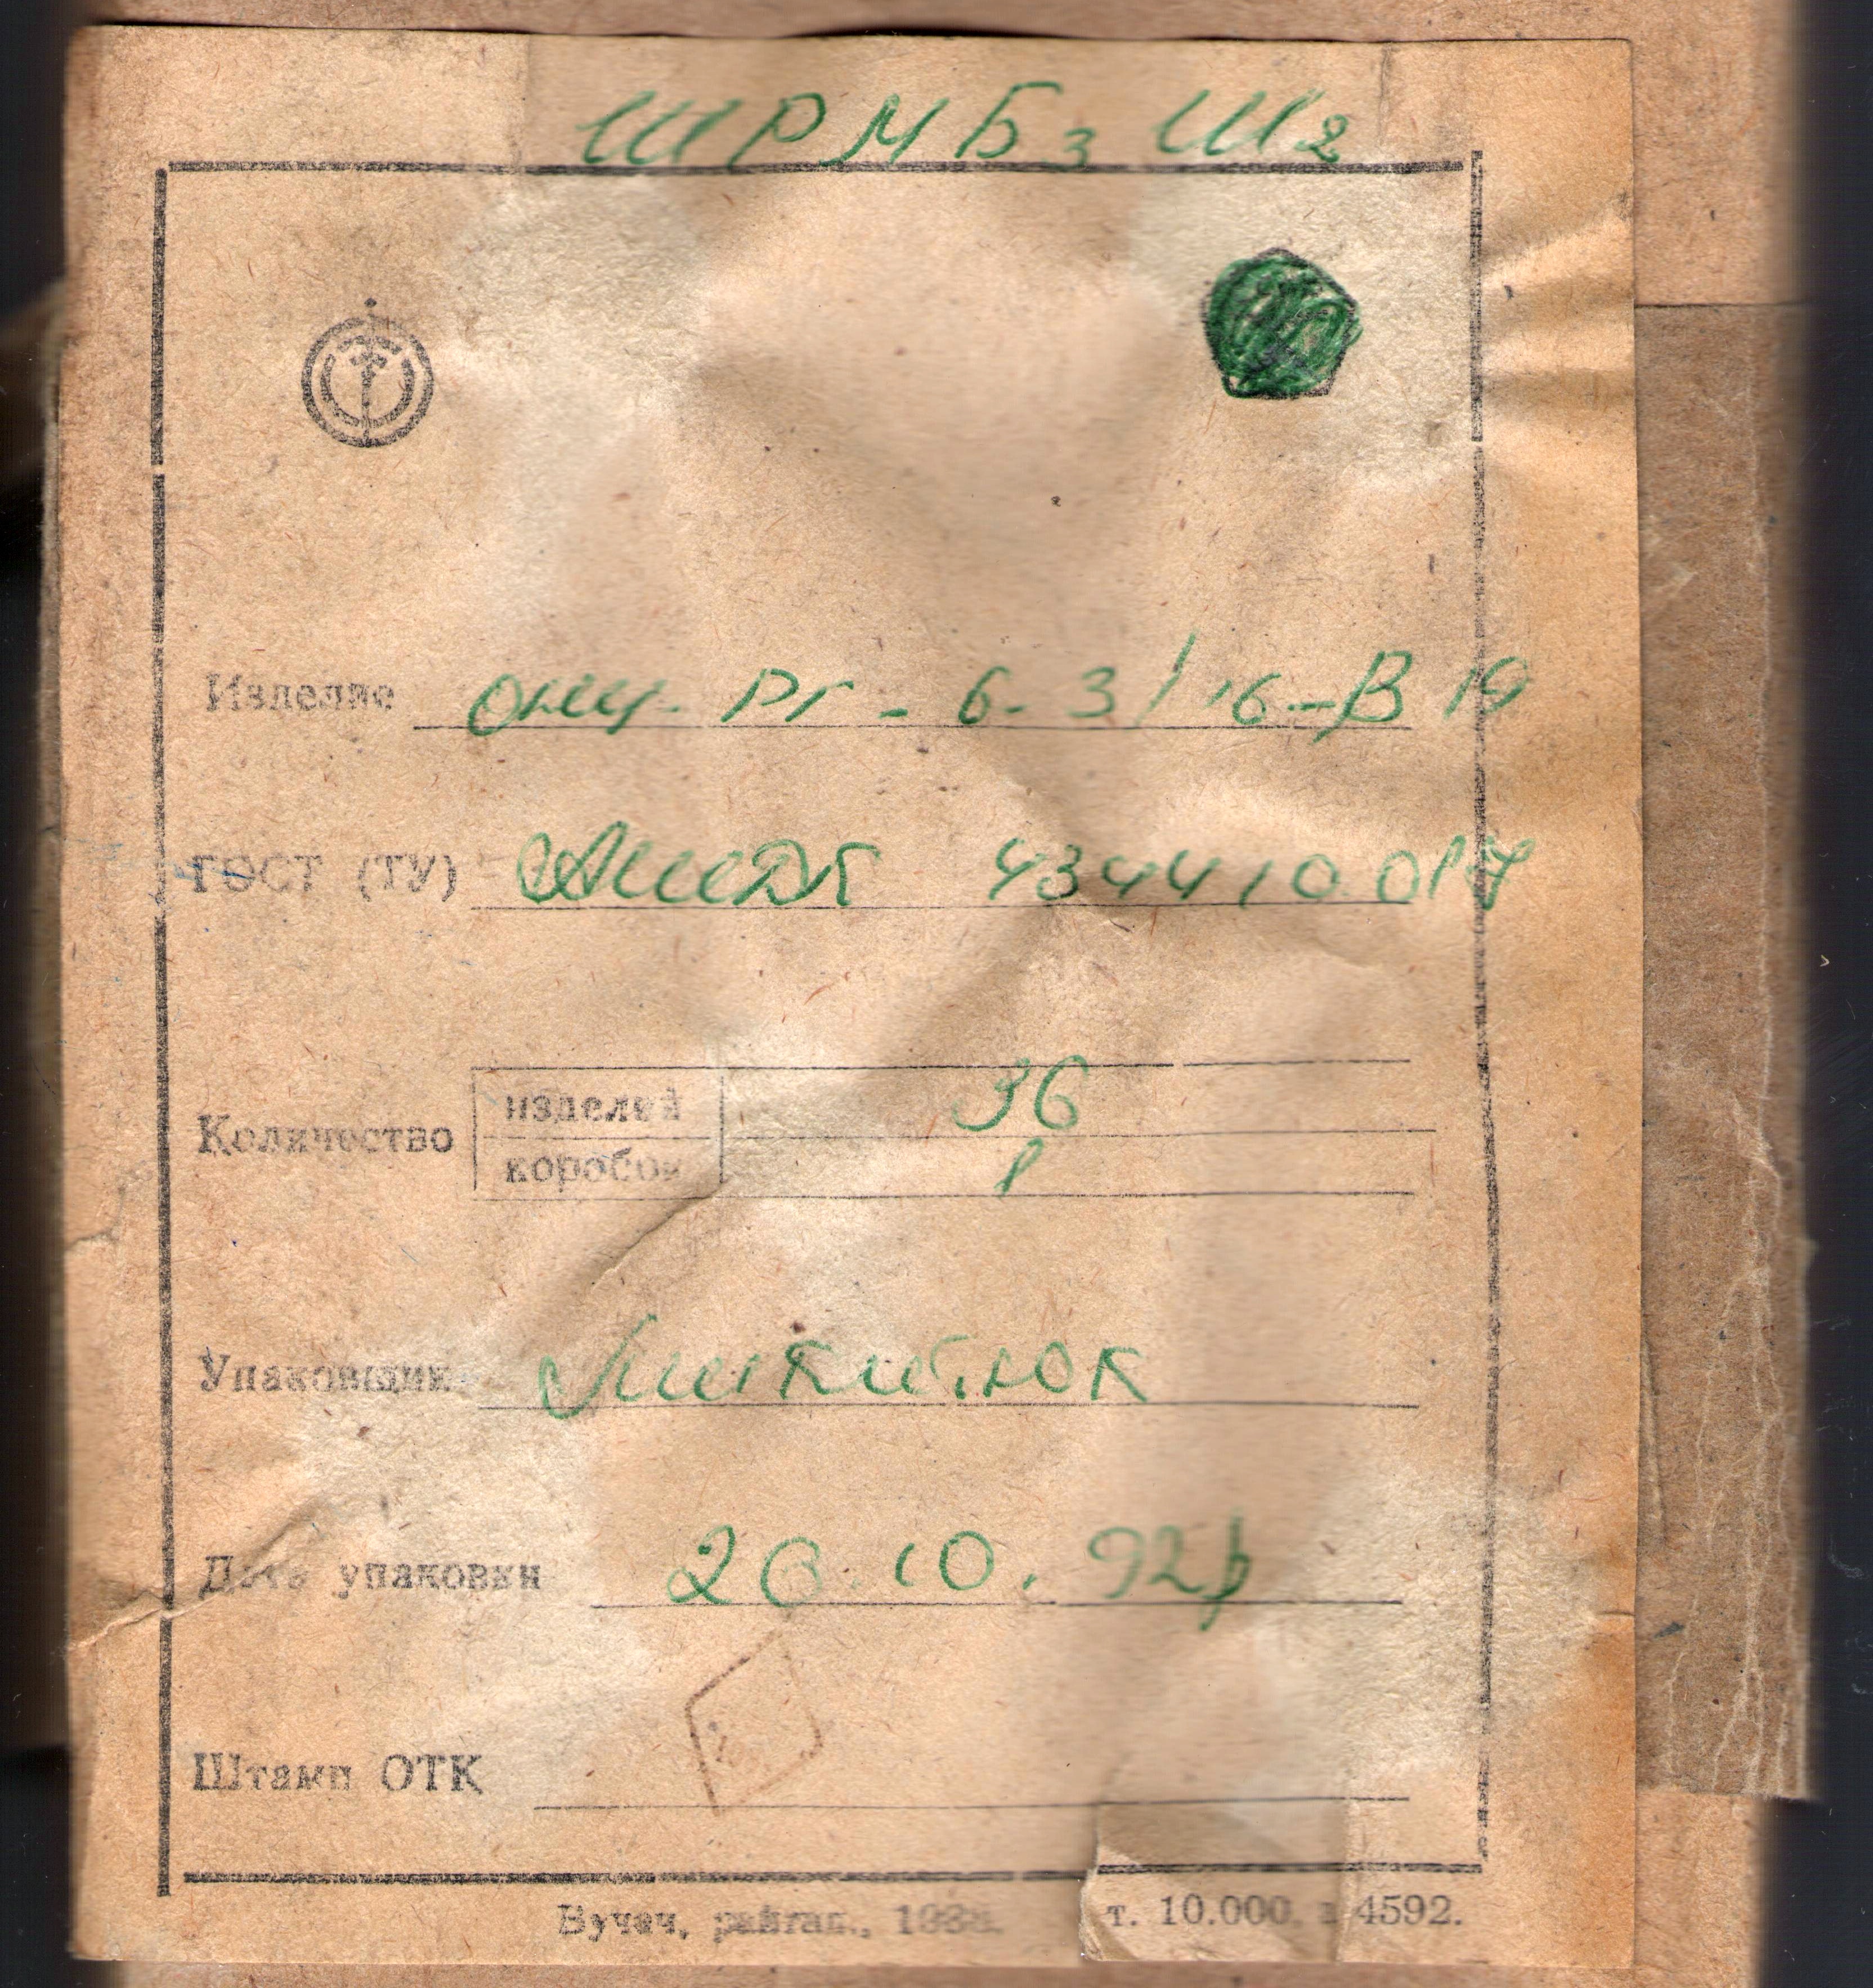 ШРМБ3Ш2
Изделие онц-РГ-6-3/16-В19
ГОСТ (ТУ) АШДК 434410 017
Количество
изделий 36
коробок 1
Упаковщик
Дата упаковки 20.10.92
Штамп ОТК
Бучач, райтип.,
т. 10.000 з 4592.